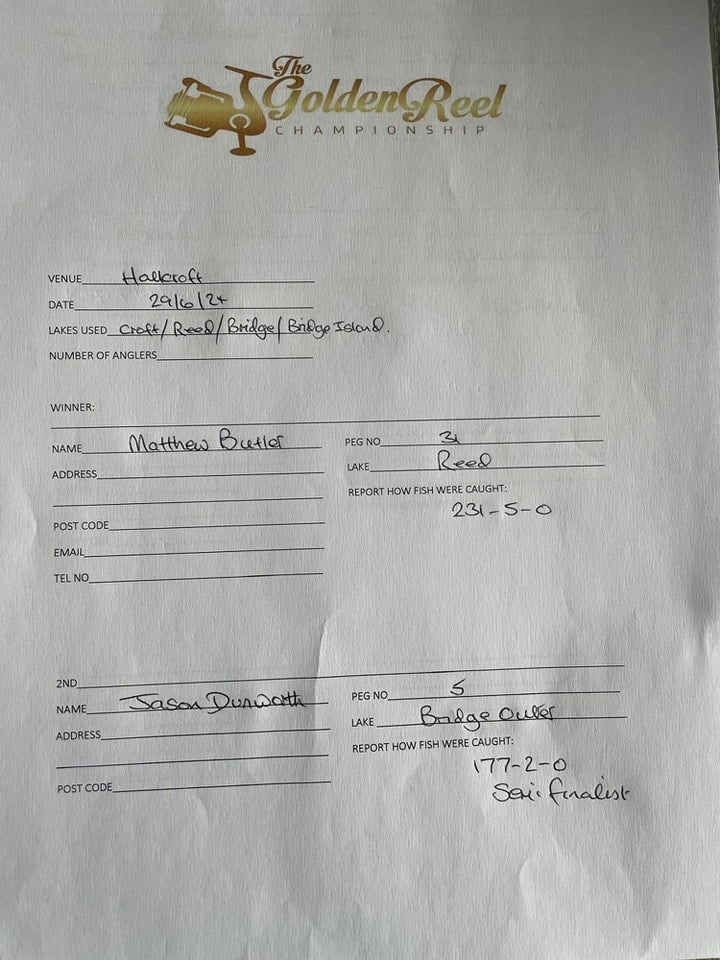 The
GoldenReel
CHAMPIONSHIP
VENUE Hallcroft
DATE 29/6/24
LAKES USED Croft/Reed/Bridge/Bridge Island.
NUMBER OF ANGLERS
WINNER:
NAME Matthew Butler
PEG NO 31
ADDRESS
LAKE Reed
REPORT HOW FISH WERE CAUGHT:
231-5-0
POST CODE
EMAIL
TEL NO
2ND
NAME Jason Dunworth
PEG NO 5
ADDRESS
LAKE Bridge Outer
REPORT HOW FISH WERE CAUGHT:
177-2-0
POST CODE
Semi finalist